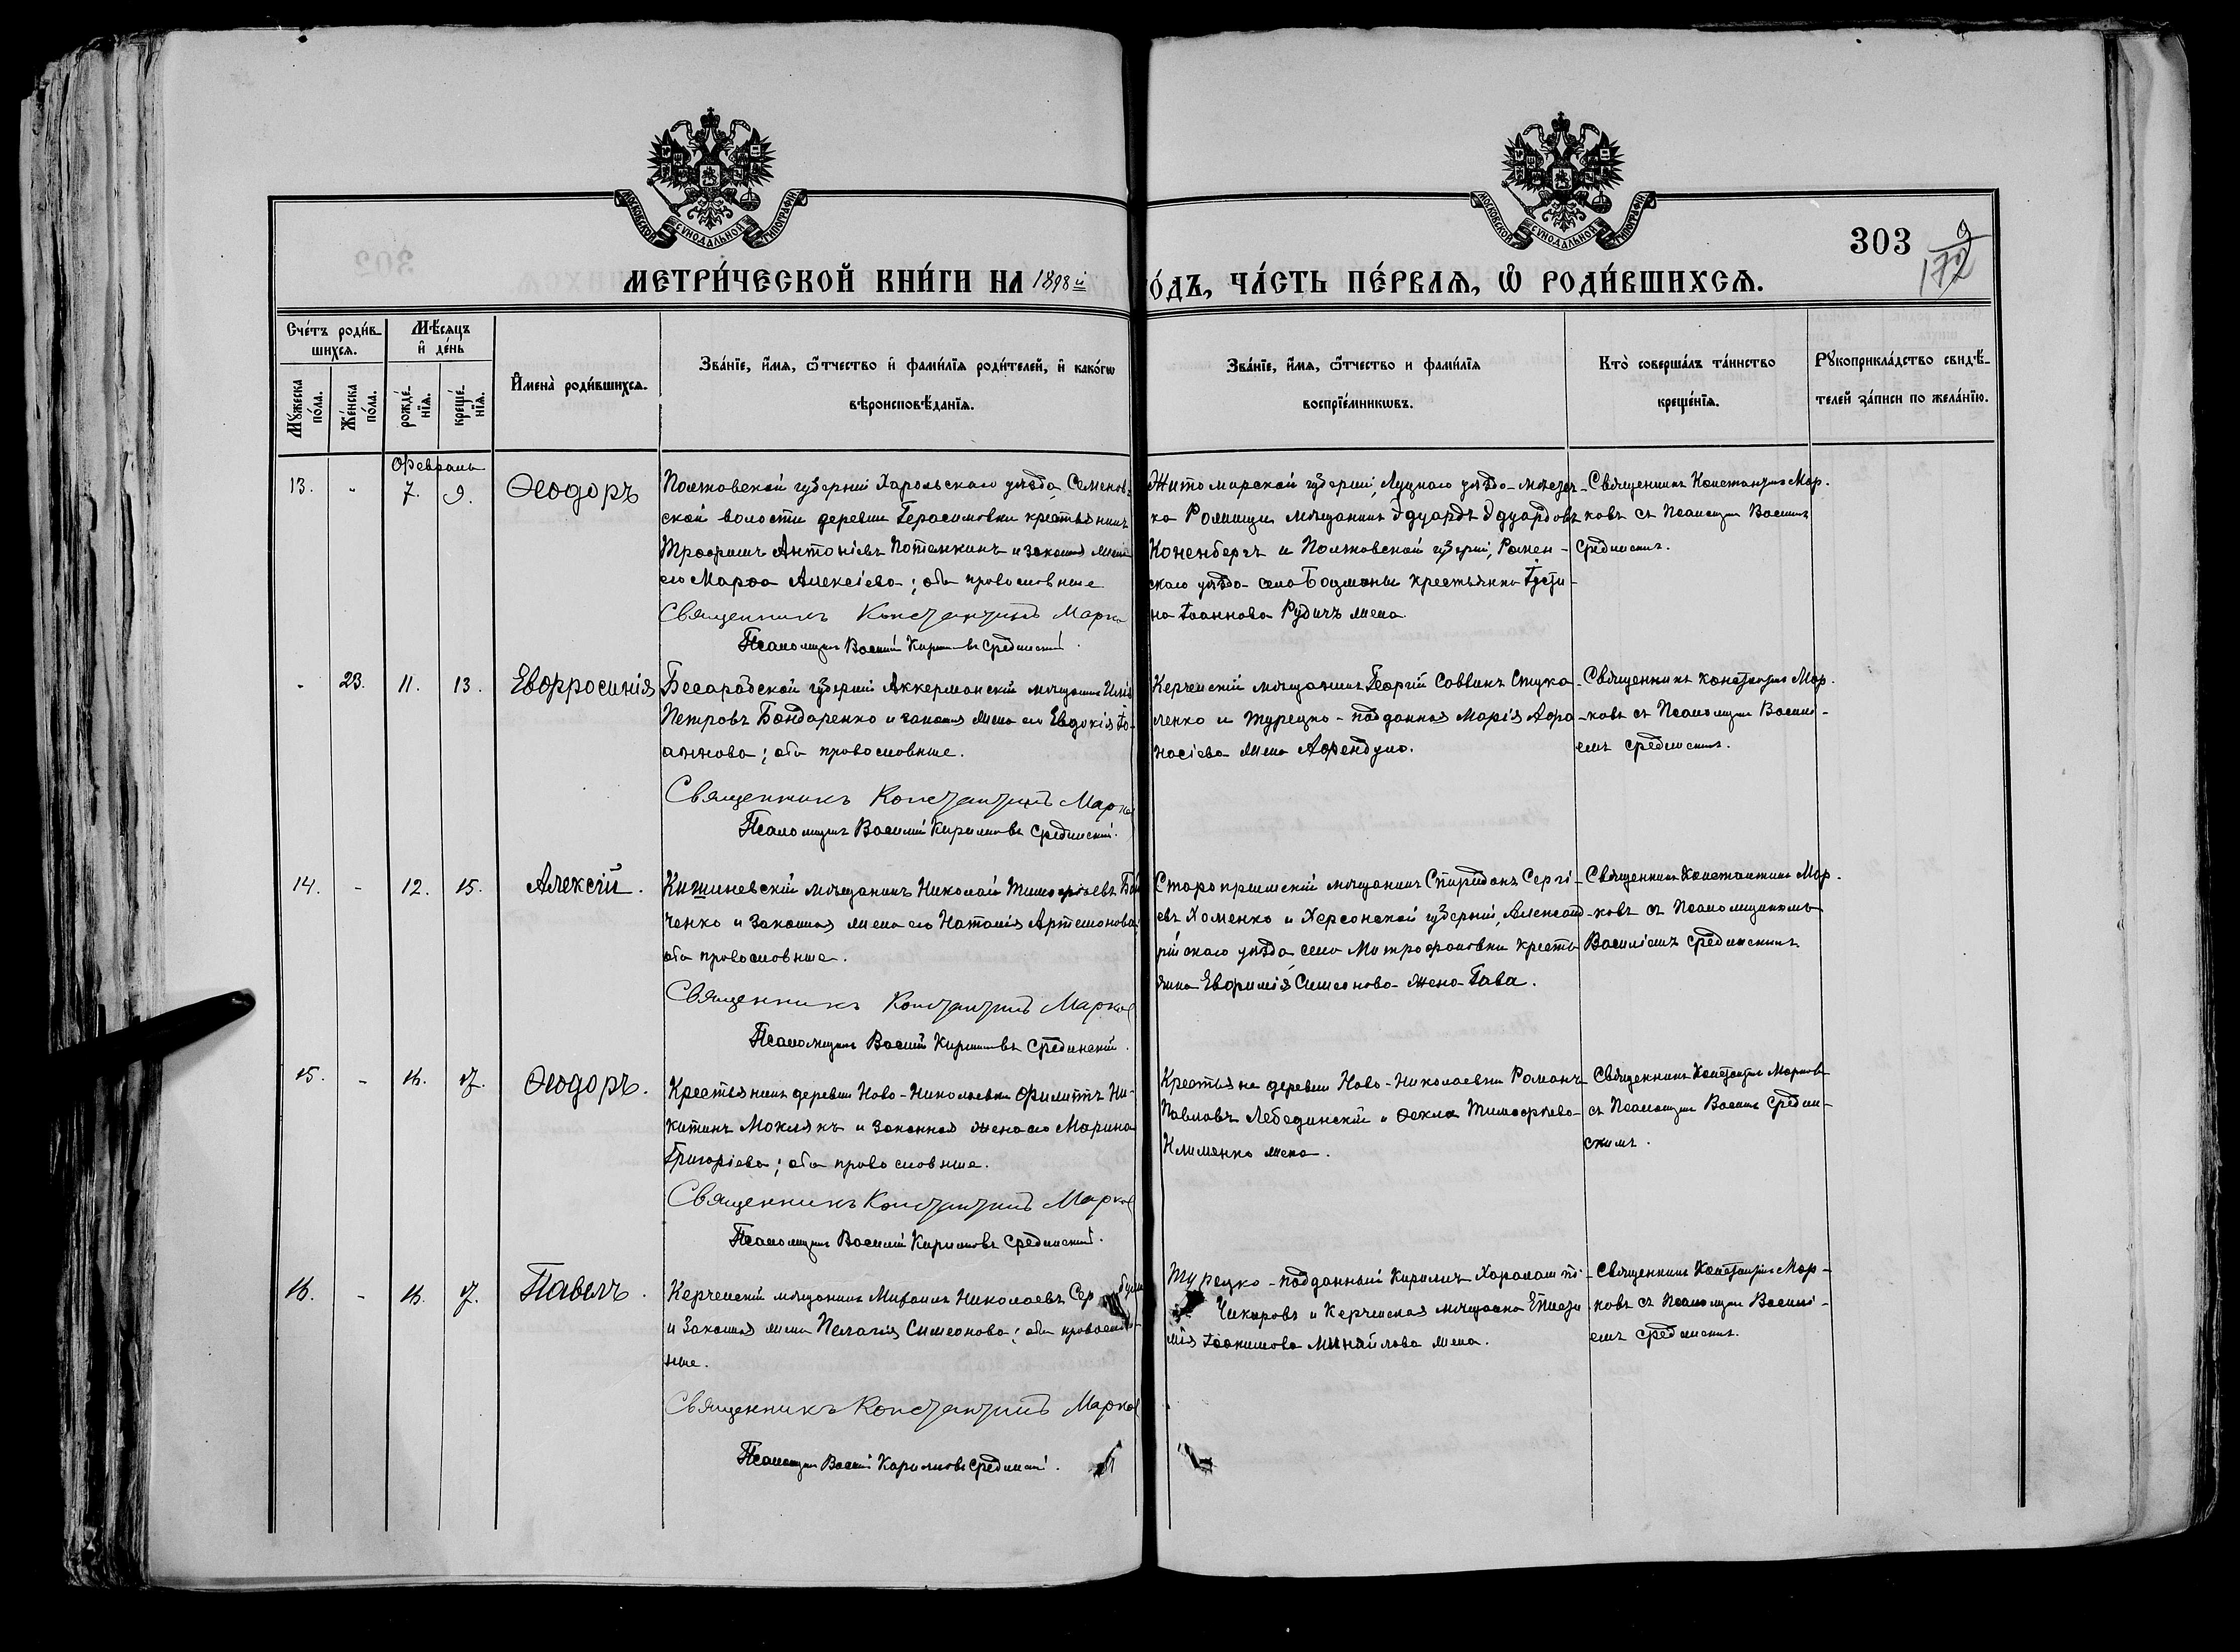 303
9
172
МЕТРИ́ЧЕСКОЙ КНИ́ГИ НА 1898 й
ГО́ДЪ, ЧА́СТЬ ПЕ́РВАѦ, Ѡ҆ РОДИ́ВШИХСѦ.
МОСКОВСКОЙ СѴНОДАЛЬНОЙ ТИПОГРАФІИ
МОСКОВСКОЙ СѴНОДАЛЬНОЙ ТИПОГРАФІИ
Сче́тъ роди́в-
шихсѧ.
Мѣ́сѧцъ
и҆ де́нь
Мꙋ́жеска
по́ла.
Же́нска
по́ла.
рожде́-
нїѧ.
креще́-
нїѧ.
И҆мена̀ роди́вшихсѧ.
Зва́нїе, и҆́мѧ, ѻ҆́тчество и҆ фами́лїѧ роди́телей, и҆ како́гѡ
вѣроисповѣ́данїѧ.
Зва́нїе, и҆́мѧ, ѻ҆́тчество и фами́лїѧ
воспрїе́мникѡвъ.
Кто̀ соверша́лъ та́инство
креще́нїѧ.
Рꙋкоприкла́дство свидѣ́-
телей за́писи по жела́нїю.
Февраль
13. - 7. 9. Ѳеодоръ
Полтавской губерніи Харольскаго уѣзда, Семенов-
ской волости деревни Герасимовки крестьянинъ
Трофимъ Антоніевъ Потемкинъ и законная жена
его Марѳа Алексіева; оба православные
Священникъ Константинъ Марко
Псаломщикъ Василій Кирилловъ Срединскій
Житомирской губерніи, Луцкаго уѣзда мѣстеч-
ка Рожищи мѣщанинъ Эдуардъ Эдуардовъ
Коненбергъ и Полтавской губерніи, Ромен-
скаго уѣзда села Бацманы крестьянка Іусти-
на Іоаннова Рудичъ жена
Священникъ Константинъ Мар-
ковъ съ Псаломщик Василіемъ
Срединскимъ.
- 23. 11. 13. Евфросинія
Бессарабской губерніи Аккерманскій мѣщанинъ Илія
Петровъ Бондаренко и законная жена его Евдокія Іо-
аннова; оба православные.
Священникъ Константинъ Марков
Псаломщикъ Василій Кирилловъ Срединскій.
Керченскій мѣщанинъ Георгій Саввинъ Стука-
ленко и турецко-подданная Марія Афа-
насіева жена Афендуло.
Священникъ Константинъ Мар-
ковъ съ Псаломщик Василі-
емъ Срединскимъ.
14. - 12. 15. Алексій.
Кишиневскій мѣщанинъ Николай Тимофеевъ Бой
ченко и законная жена его Наталія Артемонова;
оба православные.
Священникъ Константинъ Марков
Псаломщикъ Василій Кирилловъ Срединскій.
Старокрымскій мѣщанинъ Спиридонъ Сергі-
евъ Хоменко и Херсонской губерніи, Александ-
рійскаго уѣзда села Митрофановки кресть
янка Евфимія Симеонова жена Гава.
Священникъ Константинъ Мар-
ковъ съ Псаломщикомъ
Василіемъ Срединскимъ
15. - 16. 17. Ѳеодоръ.
Крестьянинъ деревни Ново-Николаевки Филиппъ Ни-
китинъ Моклякъ и законная жена его Марина
Григоріева; оба православные.
Священникъ Константинъ Марков
Псаломщикъ Василій Кирилловъ Срединскій.
Крестьяне деревни Ново-Николаевки Романъ
Павловъ Лебединскій и Ѳекла Тимофеева
Клименко жена.
Священникъ Константинъ Марковъ
съ Псаломщик Василіемъ Средин-
скимъ.
16. - 16. 17. Павелъ.
Керченскій мѣщанинъ Михаилъ Николаевъ
и законная жена Пелагія Симеонова; оба православ-
ные.
Священникъ Константинъ Марков
Псаломщикъ Василій Кирилловъ Срединскій.
Турецко-подданный Кириллъ Харалампі-
Чикаровъ и Керченская мѣщанка
Іоакимова Михайлова жена.
Священникъ Константинъ Мар-
ковъ съ Псаломщик Василі-
емъ Срединскимъ.